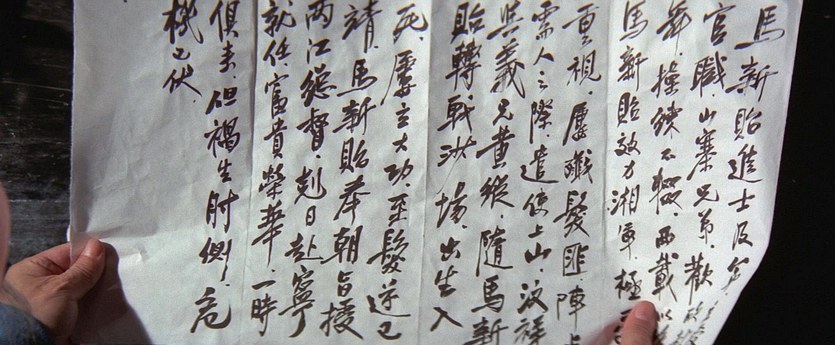 馬新貽進士及第
官職山寨兄弟歡
舞操練不輟兩載
馬新貽效力湘軍極
重視屢殲髮匪陣
需人之際遣使上山汶祥
與義兄黃縱隨馬新
貽轉戰沙場出生入
死屢立大功至髮逆已
靖馬新貽奉朝旨授
兩江總督剋日赴寧
就任富貴榮華一時
俱來但禍生肘側危
機已伏